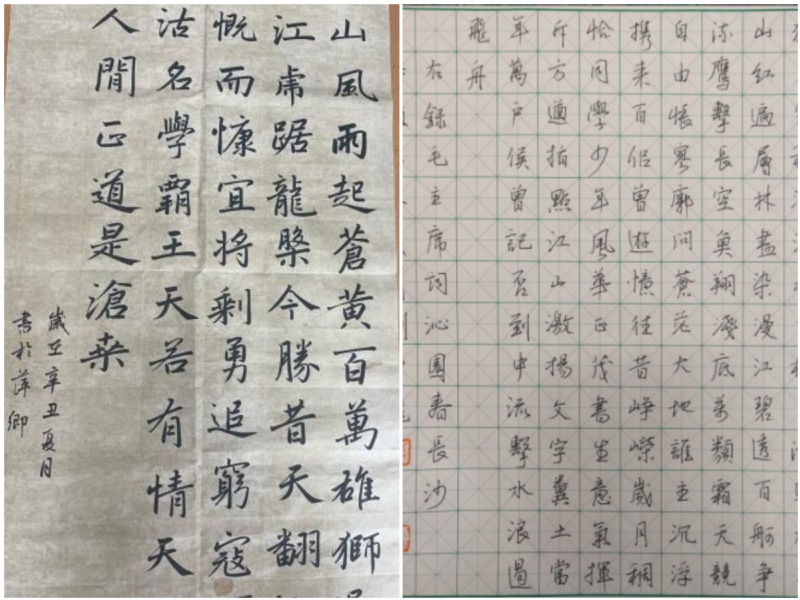 山風雨起蒼黃百萬雄獅
江虎踞龍槃今勝昔天翻
慨而慷宜將剩勇追窮寇
沽名學霸王天若有情天
人間正道是滄桑
歲在辛丑夏月
書於萍鄉
山紅遍層林盡染漫江碧透百舸争
流鷹擊長空魚翔淺底萬類霜天競
自由悵寥廓問蒼茫大地誰主沉浮
携来百侣曾遊憶往昔崢嶸歲月稠
恰同學少年風華正茂書生意氣揮
斥方遒指點江山激揚文字糞土當
年萬户侯曾記否到中流擊水浪遏
飛舟
右録毛主席詞沁園春長沙